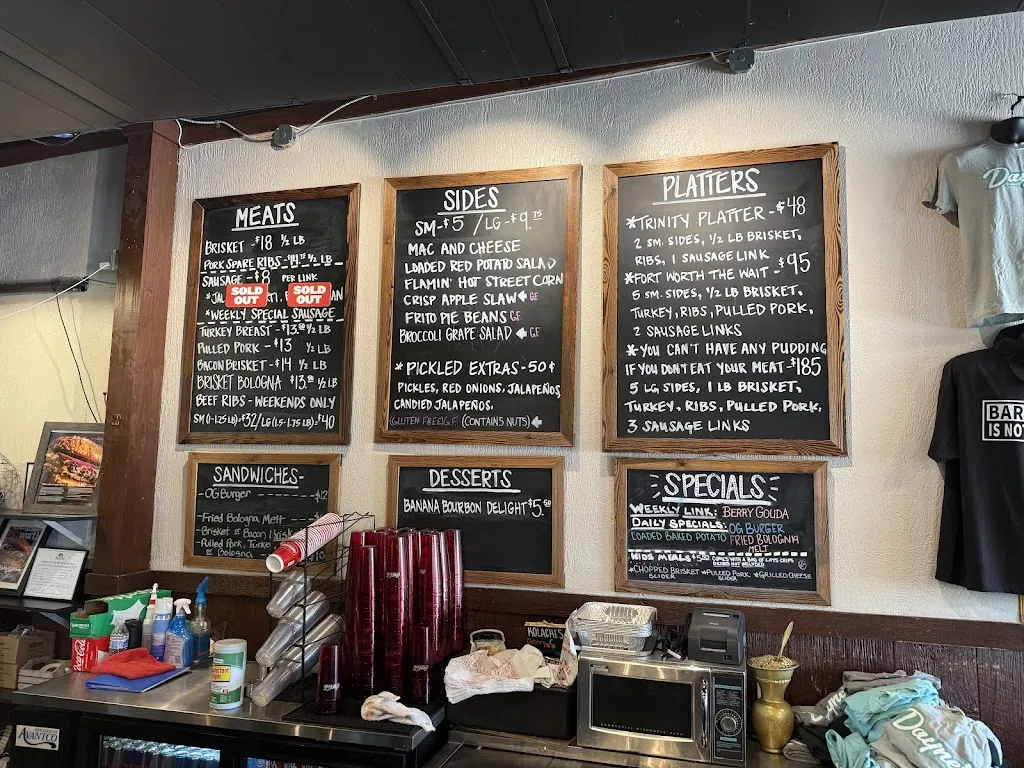 MEATS
BRISKET - $18 ½ LB
PORK SPARE RIBS - ½ LB
SAUSAGE - $8 PER LINK
SOLD OUT
SOLD OUT
*WEEKLY SPECIAL SAUSAGE
TURKEY BREAST - $13.50 ½ LB
PULLED PORK - $13 ½ LB
BACON BRISKET - $14 ½ LB
BRISKET BOLOGNA $13.50 ½ LB
BEEF RIBS - WEEKENDS ONLY
SM (1-1.25 LB) - $32/LG (1.5-1.75 LB) - $40
SIDES
SM - $5 / LG - $9.75
MAC AND CHEESE
LOADED RED POTATO SALAD
FLAMIN' HOT STREET CORN
CRISP APPLE SLAW GF
FRITO PIE BEANS GF
BROCCOLI GRAPE SALAD GF
*PICKLED EXTRAS - 50¢
PICKLES, RED ONIONS, JALAPEÑOS,
CANDIED JALAPEÑOS.
(GLUTEN FREE) G.F. (CONTAINS NUTS)
PLATTERS
*TRINITY PLATTER - $48
2 SM. SIDES, ½ LB BRISKET,
RIBS, 1 SAUSAGE LINK
*FORT WORTH THE WAIT - $95
5 SM. SIDES, ½ LB BRISKET,
TURKEY, RIBS, PULLED PORK,
2 SAUSAGE LINKS
*YOU CAN'T HAVE ANY PUDDING
IF YOU DON'T EAT YOUR MEAT - $185
5 LG. SIDES, 1 LB BRISKET,
TURKEY, RIBS, PULLED PORK,
3 SAUSAGE LINKS
SANDWICHES -
- OG BURGER - $12
- Fried Bologna Melt -
- Brisket or Bacon Brisket
- Pulled Pork, Turkey
or Bologna
DESSERTS
BANANA BOURBON DELIGHT $5.50
SPECIALS
WEEKLY LINK: BERRY GOUDA
DAILY SPECIALS: OG BURGER
LOADED BAKED POTATO FRIED BOLOGNA
MELT
KIDS MEALS COMES WITH A BAG OF LAYS CHIPS
DRINKS NOT INCLUDED
*CHOPPED BRISKET SLIDER *PULLED PORK SLIDER *GRILLED CHEESE
BAR
IS NO
KOLACHES
Coca-Cola
AVANTCO
Dayne